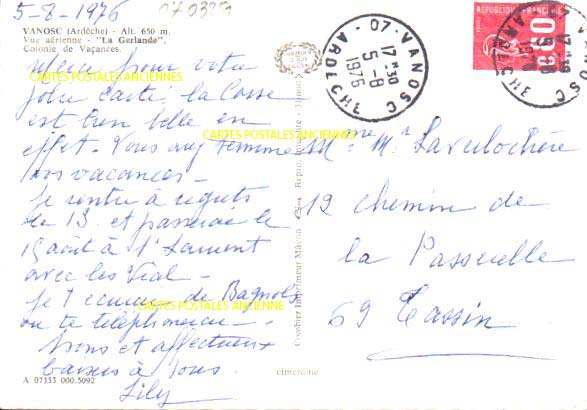 5-8-1976
070353
VANOSC (Ardèche) - Alt. 650 m.
Vue aérienne - "La Gerlande"
Colonie de Vacances.
Merci pour votre
jolie carte, la Corse
est très belle en
effet. Vous avez
vos vacances -
Je rentre à
le 13 et passerai le
15 août à St Laurent
avec les Vial -
Je t'écrirai de Bagnols
ou te téléphonerai -
Bons et affectueux
baisers à tous.
Lily
A 07333 000.5092
CARTES POSTALES ANCIENNES
CARTES POSTALES ANCIENNES
CARTES POSTALES ANCIENNE
Combier Imprimeur Mâcon
cimcolor
07-VANOSC
17 H 30
5-8
1976
ARDECHE
RÉPUBLIQUE FRANÇAISE
0,80
07-VANOSC
17 H 30
5-8
1976
ARDECHE
Mme Mr
12 chemin de
la Passerelle
69 Tassin